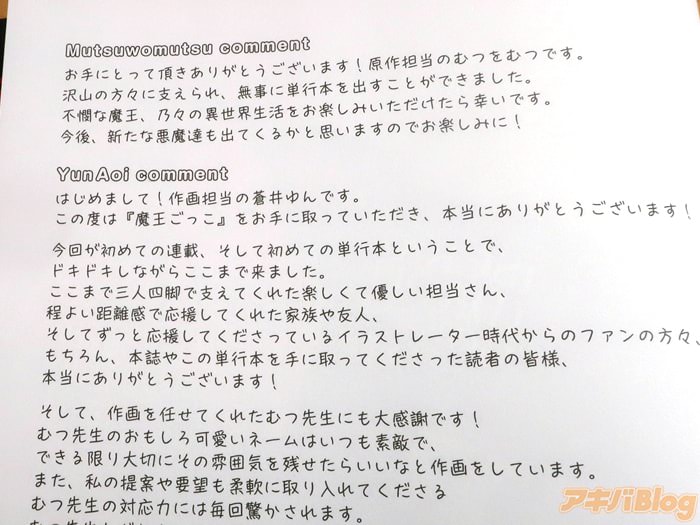 Mutsuwomutsu comment
お手にとって頂きありがとうございます！原作担当のむつをむつです。
沢山の方々に支えられ、無事に単行本を出すことができました。
不憫な魔王、乃々の異世界生活をお楽しみいただけたら幸いです。
今後、新たな悪魔達も出てくるかと思いますのでお楽しみに！
YunAoi comment
はじめまして！作画担当の蒼井ゆんです。
この度は『魔王ごっこ』をお手に取っていただき、本当にありがとうございます！
今回が初めての連載、そして初めての単行本ということで、
ドキドキしながらここまで来ました。
ここまで三人四脚で支えてくれた楽しくて優しい担当さん、
程よい距離感で応援してくれた家族や友人、
そしてずっと応援してくださっているイラストレーター時代からのファンの方々、
もちろん、本誌やこの単行本を手に取ってくださった読者の皆様、
本当にありがとうございます！
そして、作画を任せてくれたむつ先生にも大感謝です！
むつ先生のおもしろ可愛いネームはいつも素敵で、
できる限り大切にその雰囲気を残せたらいいなと作画をしています。
また、私の提案や要望も柔軟に取り入れてくださる
むつ先生の対応力には毎回驚かされます。
アキバBlog